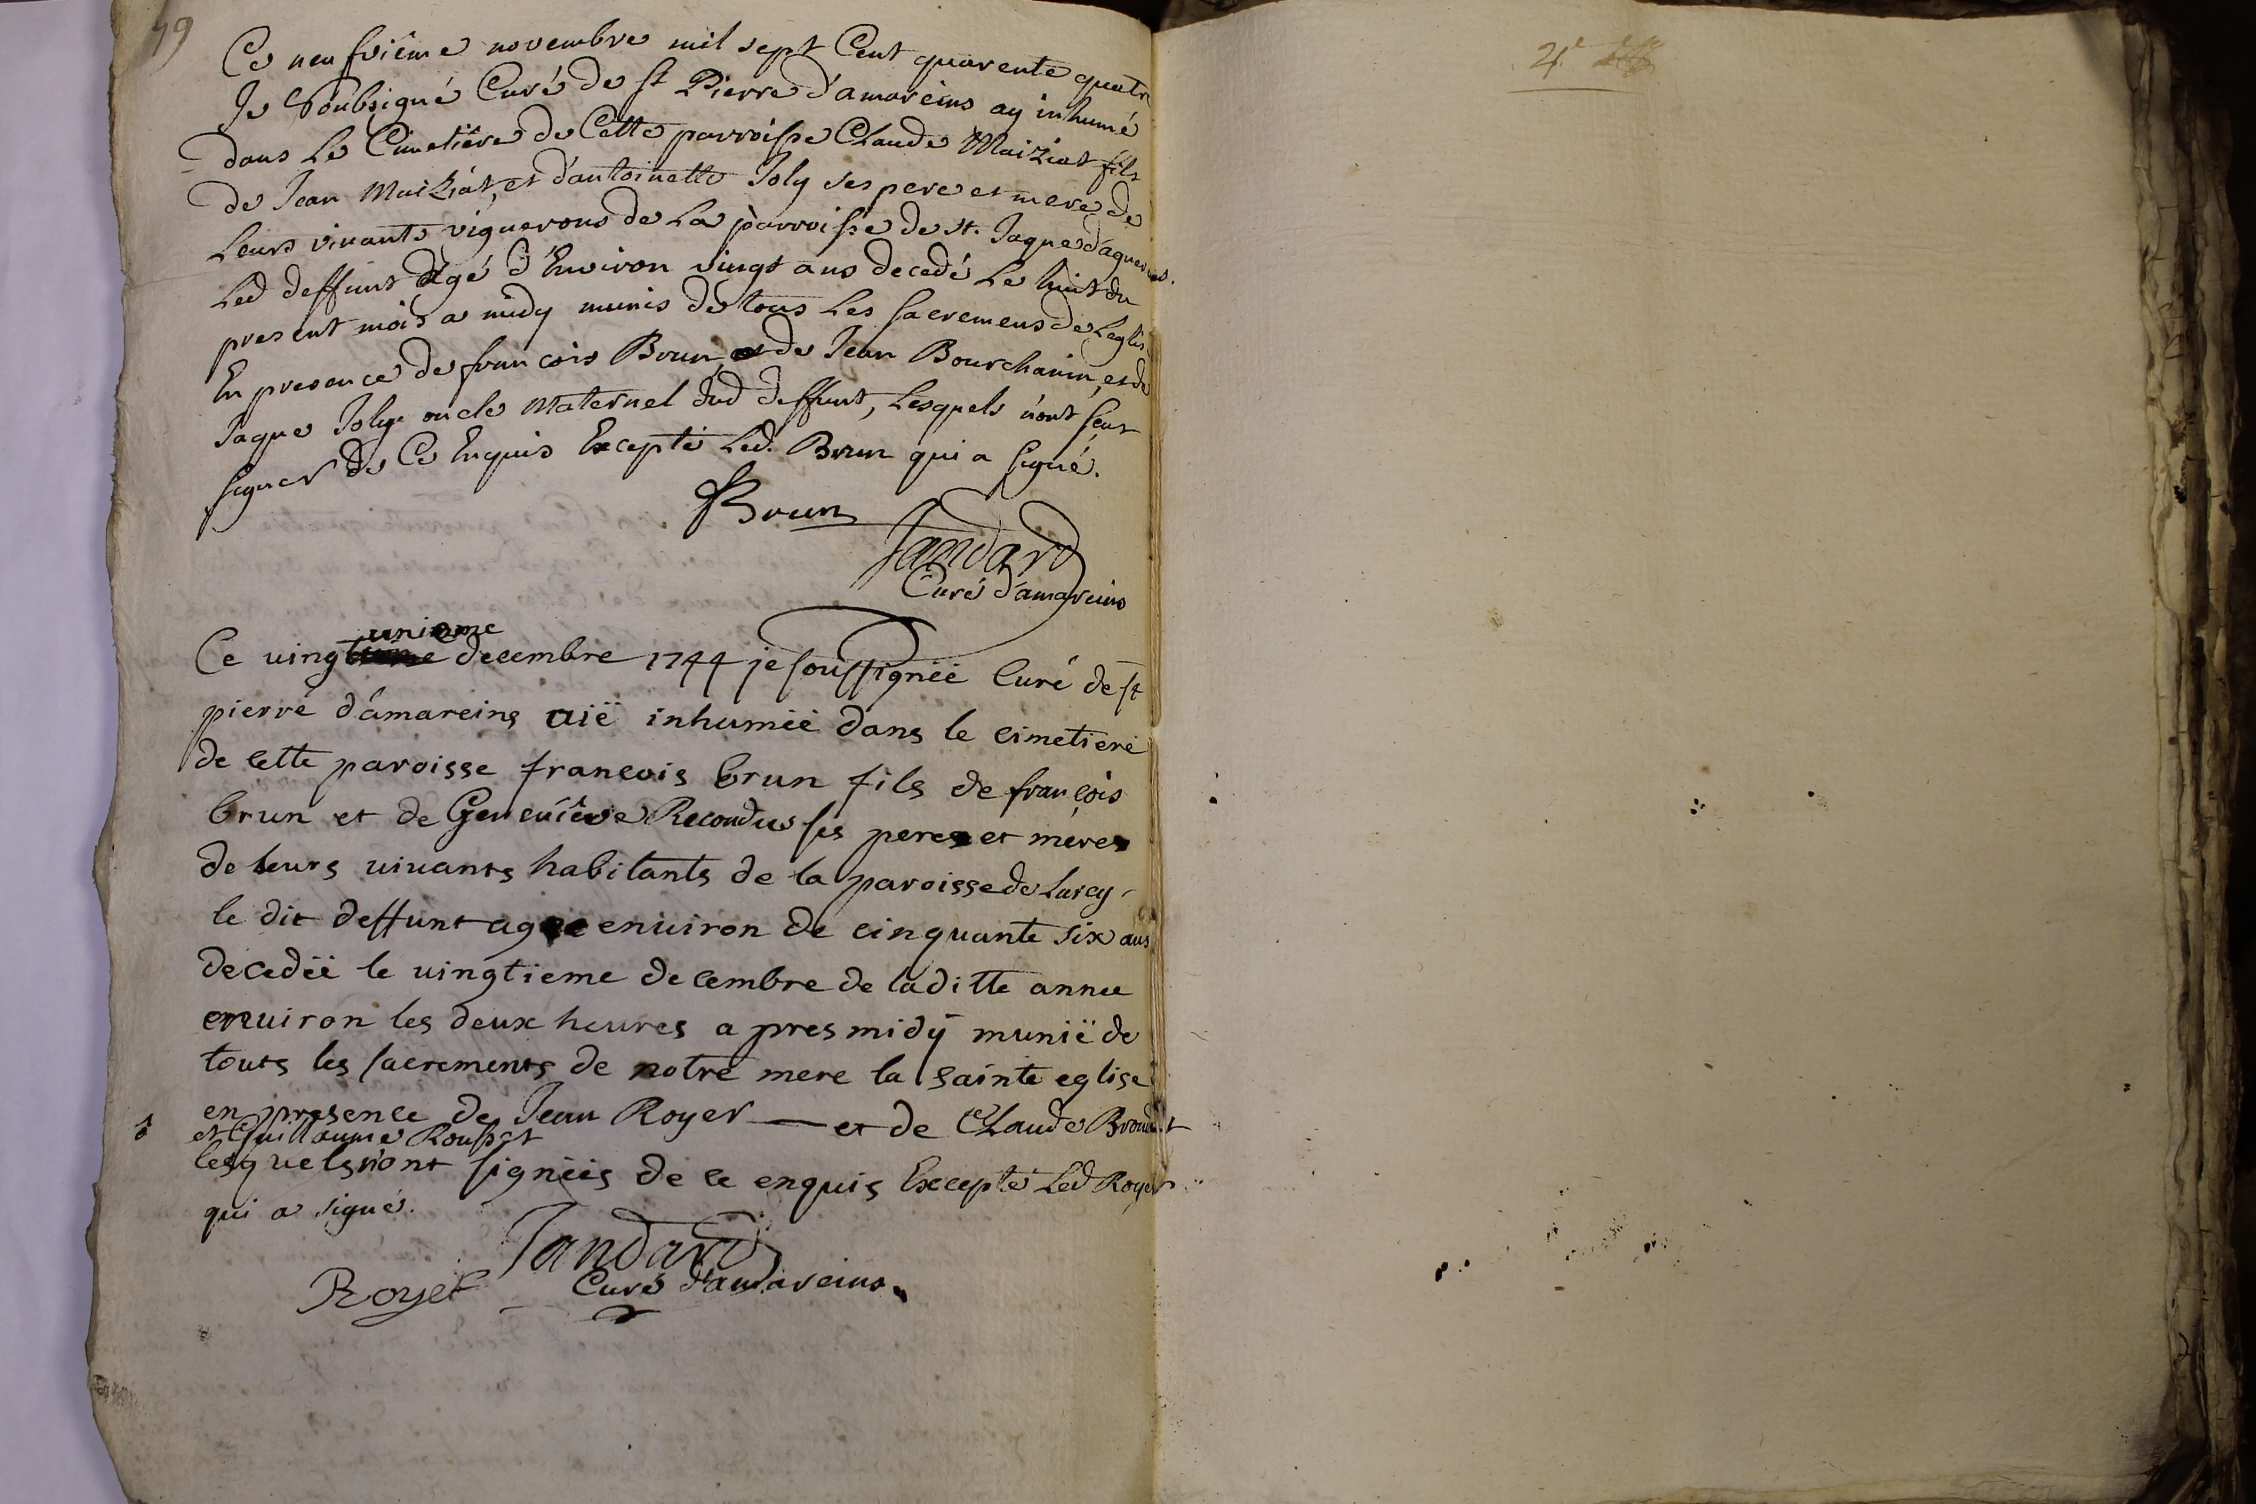 79
Ce neufviême novembre mil sept Cent quarente quatre
Je Soubsigné Curé de st Pierre d'amareins ay inhumé
dans Le Cimetière de Cette parroisse Claude Maiziat fils
de Jean Maiziat, et d'antoinette Joly ses pere et mere de
Leurs vivants vignerons de La parroisse de st. Jaque d'aguerins.
Led deffunt âgé d'Environ vingt ans decedé Le huit du
present mois a midy munis de tous Les sacremens de Leglise
En presence de francois Brun, et de Jean Bourchanin, et de
Jaque Joly oncle Maternel dud deffunt, Lesquels n'ont sçeut
signer de Ce Enquis Excepté Led. Brun qui a signé.
Brun
Jandard
Curé d'amareins
unieme
Ce vingt decembre 1744 je soussignéé Curé de st
pierre d'amareins aië inhuméé dans le cimetiere
de cette paroisse francois brun fils de françois
brun et de Geneviêve Recondus ses peres et méres
de leurs vivants habitants de la paroisse de Lurcy
le dit deffunt agée environ de cinquante six ans
decedéé le vingtieme decembre de laditte annee
environ les deux heures a pres midÿ munië de
touts les sacrements de notre mere la sainte eglise
en presence de Jean Royer et de Claude
et Guillaume Rousset
lesquels n'ont signéés de ce enquis Excepté Led Royer
qui a signé.
Jandard
Royer Curé d'amareins.